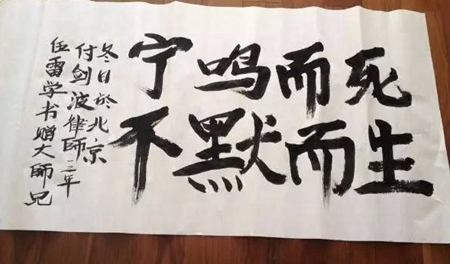 宁鸣而死
不默而生
伍雷学书赠大師兄
付剑波律師三年
冬日於北京